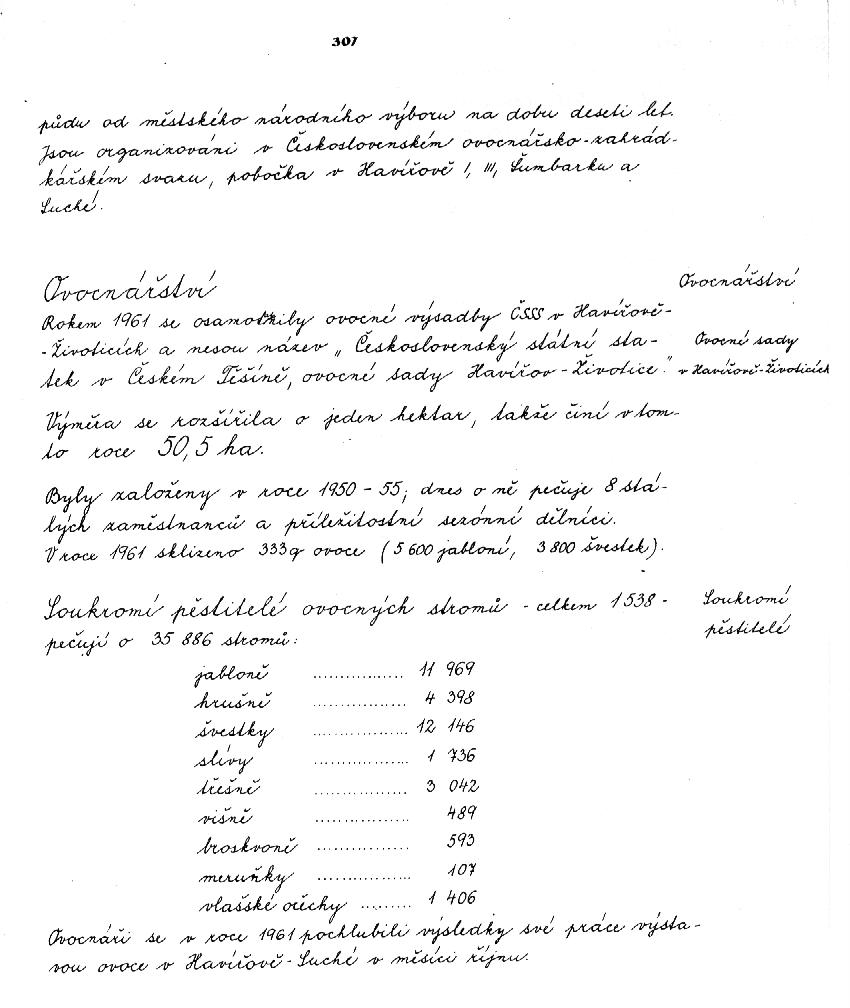 307
půdu od městského národního výboru na dobu deseti let.
Jsou organizováni v Československém ovocnářsko-zahrád-
kářském svazu, pobočka v Havířově I, III, Šumbarku a
Suché.
Ovocnářství
Ovocnářství
Rokem 1961 se osamotnily ovocné výsadby ČSSS v Havířově-
-Životicích a nesou název „Československý státní sta-
Ovocné sady
tek v Českém Těšíně, ovocné sady Havířov-Životice."
v Havířově-Životicích
Výměra se rozšířila o jeden hektar, takže činí v tom-
to roce 50,5 ha.
Byly založeny v roce 1950-55; dnes o ně pečuje 8 stá-
lých zaměstnanců a příležitostní sezónní dělníci.
V roce 1961 sklizeno 333q ovoce (5 600 jabloní, 3 800 švestek).
Soukromí pěstitelé ovocných stromů - celkem 1538 -
Soukromí
pečují o 35 886 stromů:
pěstitelé
jabloně ................. 11 969
hrušně .................. 4 398
švestky .................. 12 146
slívy .................. 1 736
třešně .................. 3 042
višně .................. 489
broskvoně ................. 593
meruňky .................. 107
vlašské ořechy ......... 1 406
Ovocnáři se v roce 1961 pochlubili výsledky své práce výsta-
vou ovoce v Havířově-Suché v měsíci říjnu.